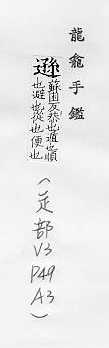 龍龕手鑑
遜蘇困反恭也遁也順
也避也從也便也
(辵部
V3
P49
A3
)